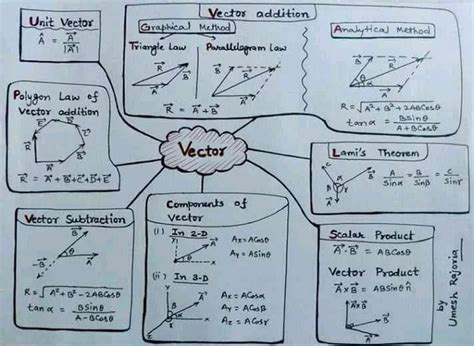 Unit Vector
Â = A⃗ / |A⃗|
Vector addition
Graphical Method
Triangle Law
Parallelogram Law
R⃗ B⃗ A⃗
B⃗ R⃗ A⃗
R⃗ = A⃗ + B⃗
Analytical Method
B⃗ R⃗ α θ A⃗
R = √A² + B² + 2ABCosθ
tan α = BSinθ / A + BCosθ
Polygon Law of
Vector addition
E⃗ D⃗ C⃗ R⃗ B⃗ A⃗
R⃗ = A⃗ + B⃗ + C⃗ + D⃗ + E⃗
Vector
Lami's Theorem
A⃗ B⃗ C⃗
A / Sinα = B / Sinβ = C / Sinγ
Vector Subtraction
B⃗ θ A⃗ -B⃗ R⃗
R = √A² + B² - 2ABCosθ
tan α = BSinθ / A - BCosθ
Components of
Vector
(i) In 2-D
Y A⃗ θ X
Ax = ACosθ
Ay = ASinθ
(ii) In 3-D
Y A⃗ β α γ X Z
Ax = ACosα
Ay = ACosβ
Az = ACosγ
Scalar Product
A⃗ · B⃗ = ABCosθ
Vector Product
A⃗ x B⃗ = ABSinθ n̂
A⃗xB⃗
B⃗
A⃗
by
Umesh Rajoria